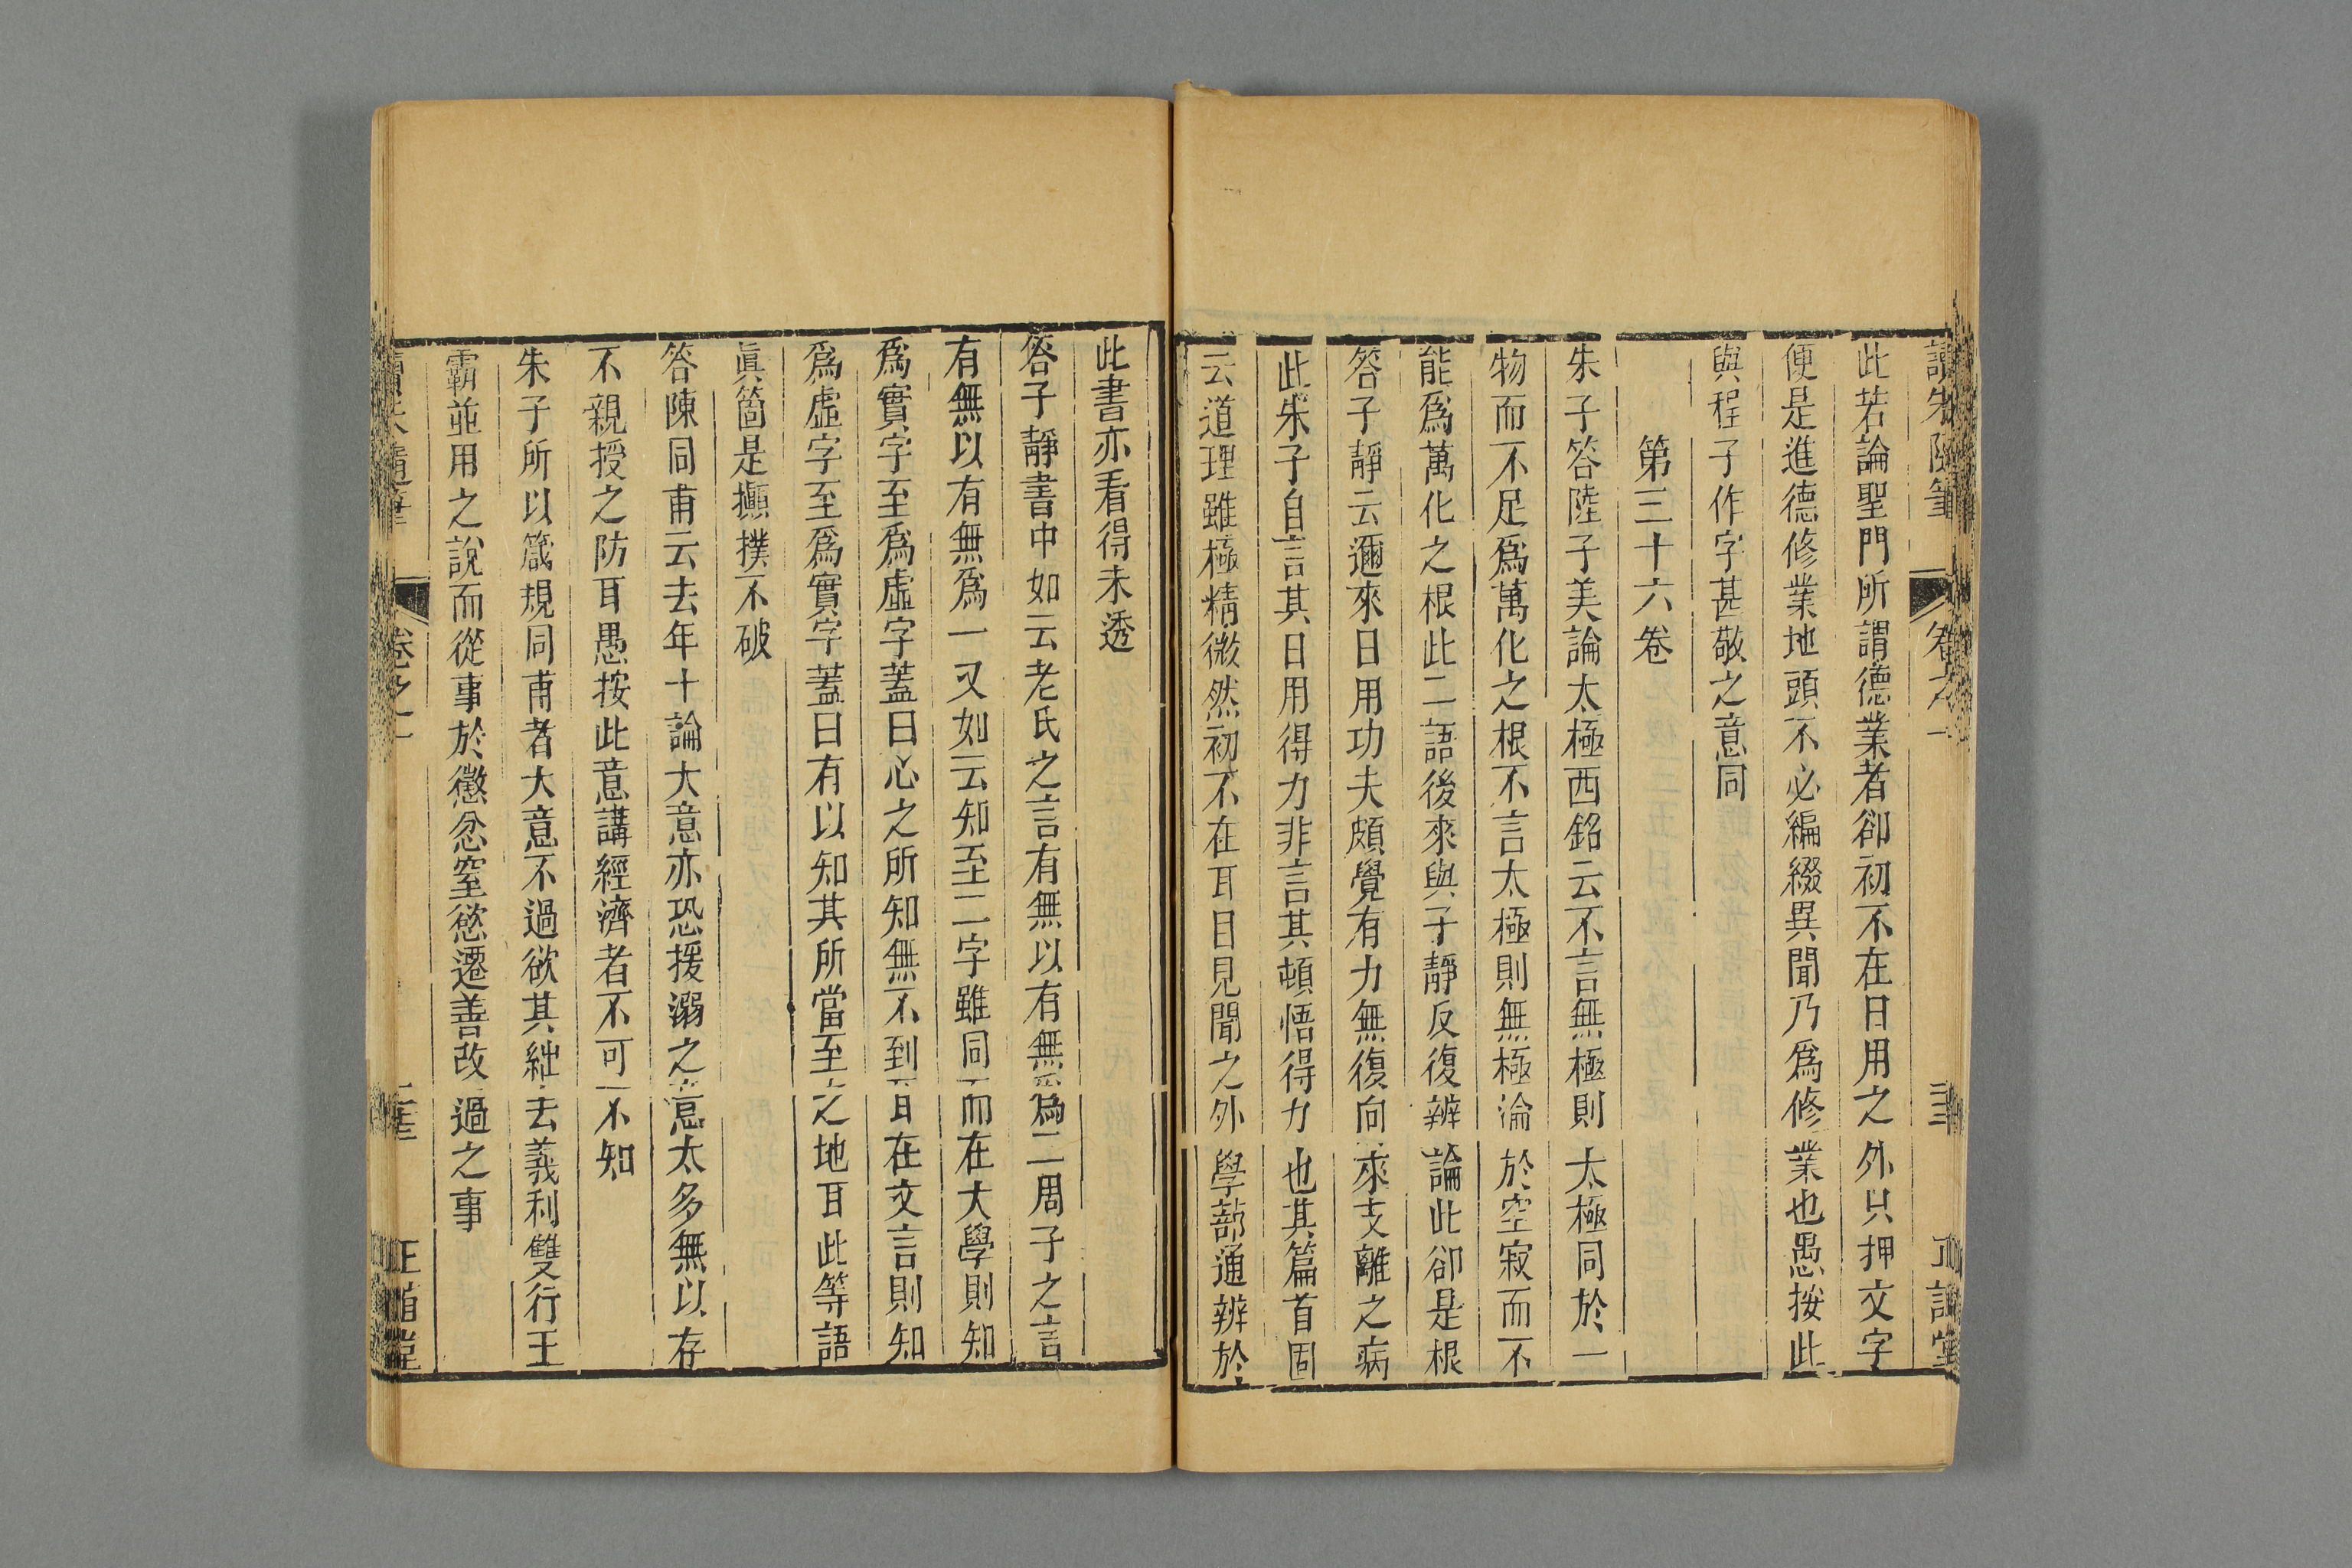 讀朱隨筆 卷之一
此若論聖門所謂德業者卻初不在日用之外只押文字
便是進德修業地頭不必編綴異聞乃爲修業也愚按此
與程子作字甚敬之意同
第三十六卷
朱子答陸子美論太極西銘云不言無極則太極同於一
物而不足爲萬化之根不言太極則無極淪於空寂而不
能爲萬化之根此二語後來與子靜反復辨論此卻是根
答子靜云邇來日用功夫頗覺有力無復向來支離之病
此朱子自言其日用得力非言其頓悟得力也其篇首固
云道理雖極精微然初不在耳目見聞之外學蔀通辨於
此書亦看得未透
答子靜書中如云老氏之言有無以有無爲二周子之言
有無以有無爲一又如云知至二字雖同而在大學則知
爲實字至爲虛字蓋曰心之所知無不到耳在文言則知
爲虛字至爲實字蓋曰有以知其所當至之地耳此等語
眞箇是攧撲不破
答陳同甫云去年十論大意亦恐援溺之意太多無以存
不親授之防耳愚按此意講經濟者不可不知
朱子所以箴規同甫者大意不過欲其絀去義利雙行王
霸並用之說而從事於懲忿窒慾遷善改過之事
讀朱隨筆 卷之一 正誼堂